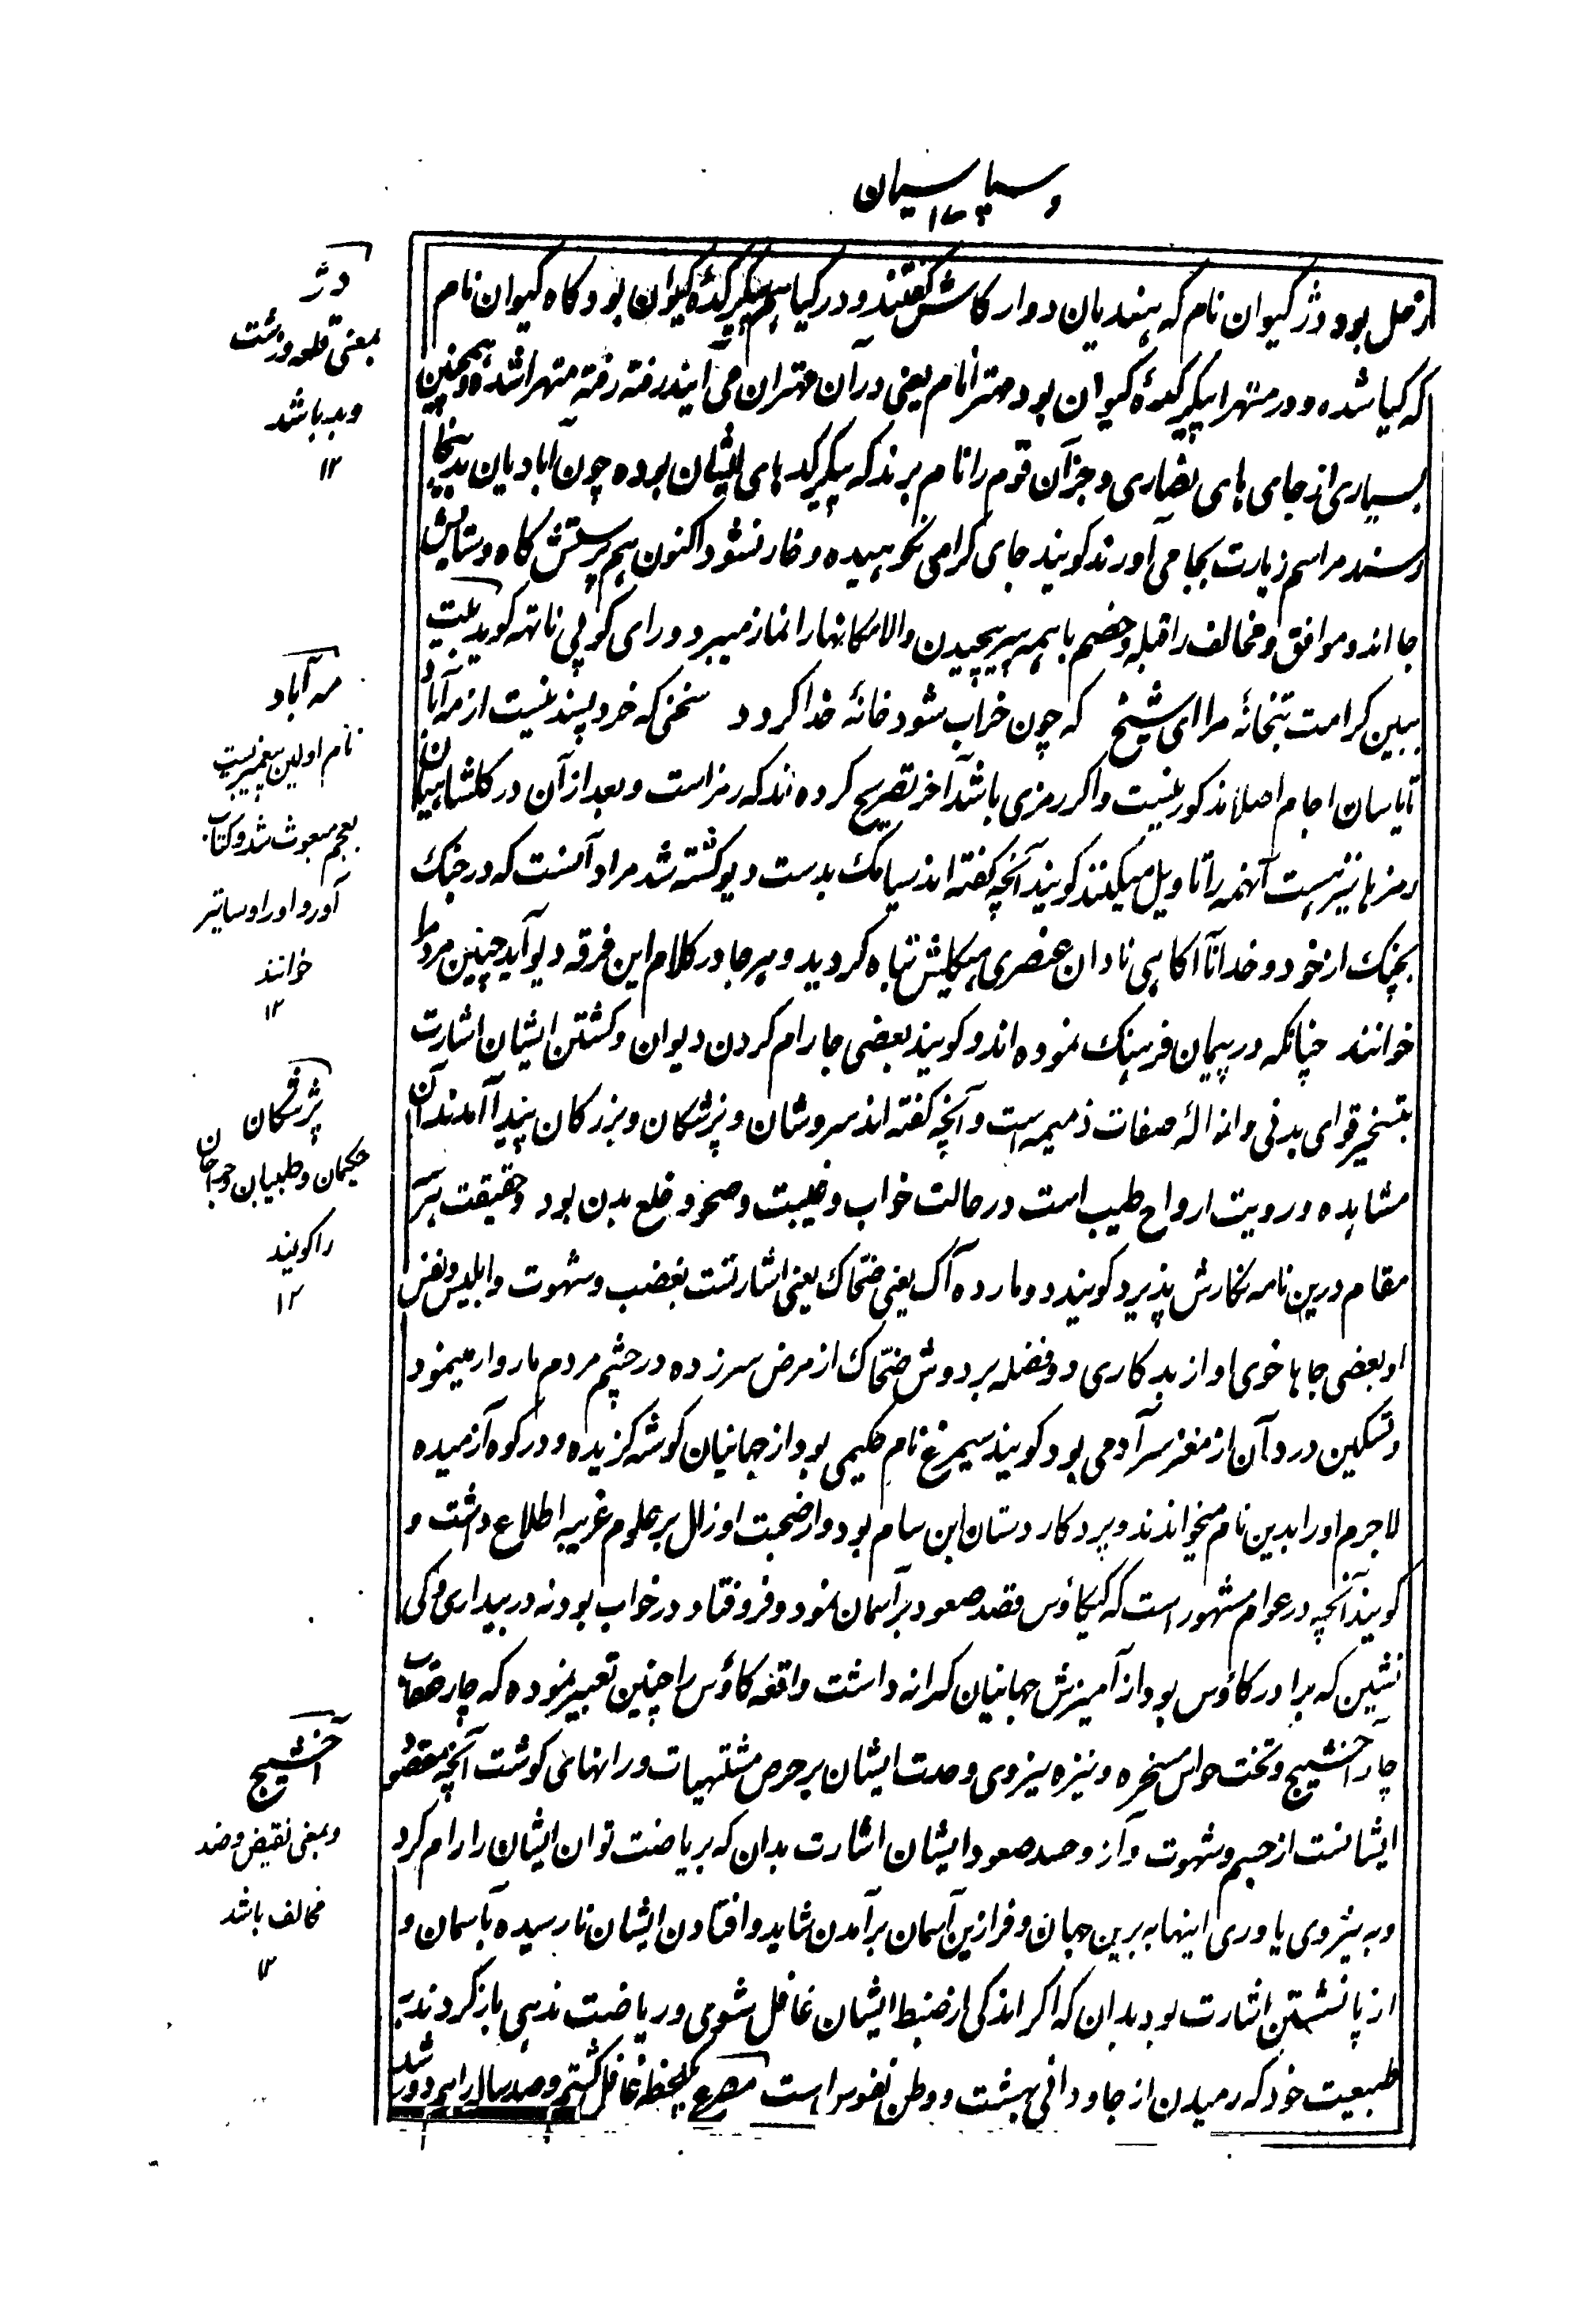 و سپاسیان
۱۷
زحل بود و دژ کیوان نام که هندیان دوارکاش گفتند و در کیا هم پیکرکدهٔ کیوان بود کاه کیوان نام
که کیا شده و در متهرا پیکرکدهٔ کیوان بود مهترا نام یعنی در آن مهتران می آیند رفته رفته متهرا شده و همچنین
بسیاری از جای های نصاری و جز آن قوم را نام برند که پیکرکدهای ایشان بوده چون آبادیان بدینجا
رسند مراسم زیارت بجا می آورند کویند جای کرامی نکوهیده و خار نشود اکنون هم پرستش کاه و ستایش
جا اند و موافق و مخالف را قبله و خصم با همه سرپیچیدن والامکانها را نماز میبرد و رای کوپی ناتهه کوید بیت
ببین کرامت بتخانهٔ مرا ای شیخ که چون خراب شود خانهٔ خدا کردد سخنی که خردپسند نیست از مه آباد
تا یاسان اجام اصلا مذکور نیست و اکر رمزی باشد آخر تصریح کرده اند که رمز است و بعد از آن در کلشاهیان
رمزها نیز هست آنهمه را تاویل میکنند کویند آنچه کفته اند سیامک بدست دیو کشته شد مراد آنست که در جنک
بچنک از خود و خدا ناآکاهی نادان عنصری هیکلش تباه کردید و هر جا در کلام این فرقه دیو آید چنین مردم را
خوانند چنانکه در پیمان فرهنک نموده اند و کویند بعضی جا رام کردن دیوان و کشتن ایشان اشارت
بتسخیر قوای بدنی و ازالهٔ صفات ذمیمه است و آنچه کفته اند سروشان و پزشکان و بزرکان پیدا آمدند آن
مشاهده و رویت ارواح طیب است در حالت خواب و غیبت و صحو و خلع بدن بود و حقیقت هر
مقام درین نامه نکارش پذیرد کویند دو مار ده آک یعنی ضحاک یعنی اشارتست بغضب و شهوت و ابلیس نفس
او بعضی جاها خوی او از بدکاری دو فضله بر دوش ضحاک از مرض سرزده در چشم مردم مار وار مینمود
و تسکین درد آن از مغز سر آدمی بود کویند سیمرغ نام حکیمی بود از جهانیان کوشه کزیده و در کوه آرمیده
لاجرم او را بدین نام میخواندند و پردکار دستان ابن سام بود و از صحبت او زال بر علوم غریبه اطلاع داشت و
کویند آنچه در عوام مشهور است که کیکاؤس قصد صعود بر آسمان نمود و فرو فتاد در خواب بود نه در بیداری و کی
نشین که برادر کاؤس بود از آمیزش جهانیان کرانه داشت واقعه کاؤس را چنین تعبیر نموده که چار عقاب
چار آخشیج و تخت حواس مسخره و نیزه نیروی وحدت ایشان بر حرص مشتهیات و رانهای کوشت آنچه مقصود
ایشانست از جسم و شهوت و آز و حسد صعود ایشان اشارت بدان که بریاضت توان ایشان را رام کرد
و به نیروی یاوری اینها به برین جهان و فرازین آسمان برآمدن شاید و افتادن ایشان نارسیده بآسمان و
از پا نشستن اشارت بود بدان که اکر اندکی از ضبط ایشان غافل شوی و ریاضت ندهی باز کردند به
طبیعت خود که رمیدن از جاودانی بهشت و وطن نفوس است مصرع یکلحظه غافل کشتم و صد ساله راهم دور شد
دژ
بمعنی قلعه و زشت
و بد باشد
۱۲
مه آباد
نام اولین پیغمبریست
بعجم مبعوث شد و کتاب
آورد او را دساتیر
خوانند
۱۲
پزشکان
حکیمان و طبیبان و جراحان
را کویند
۱۲
آخشیج
بمعنی نقیض و ضد
مخالف باشد
۱۲